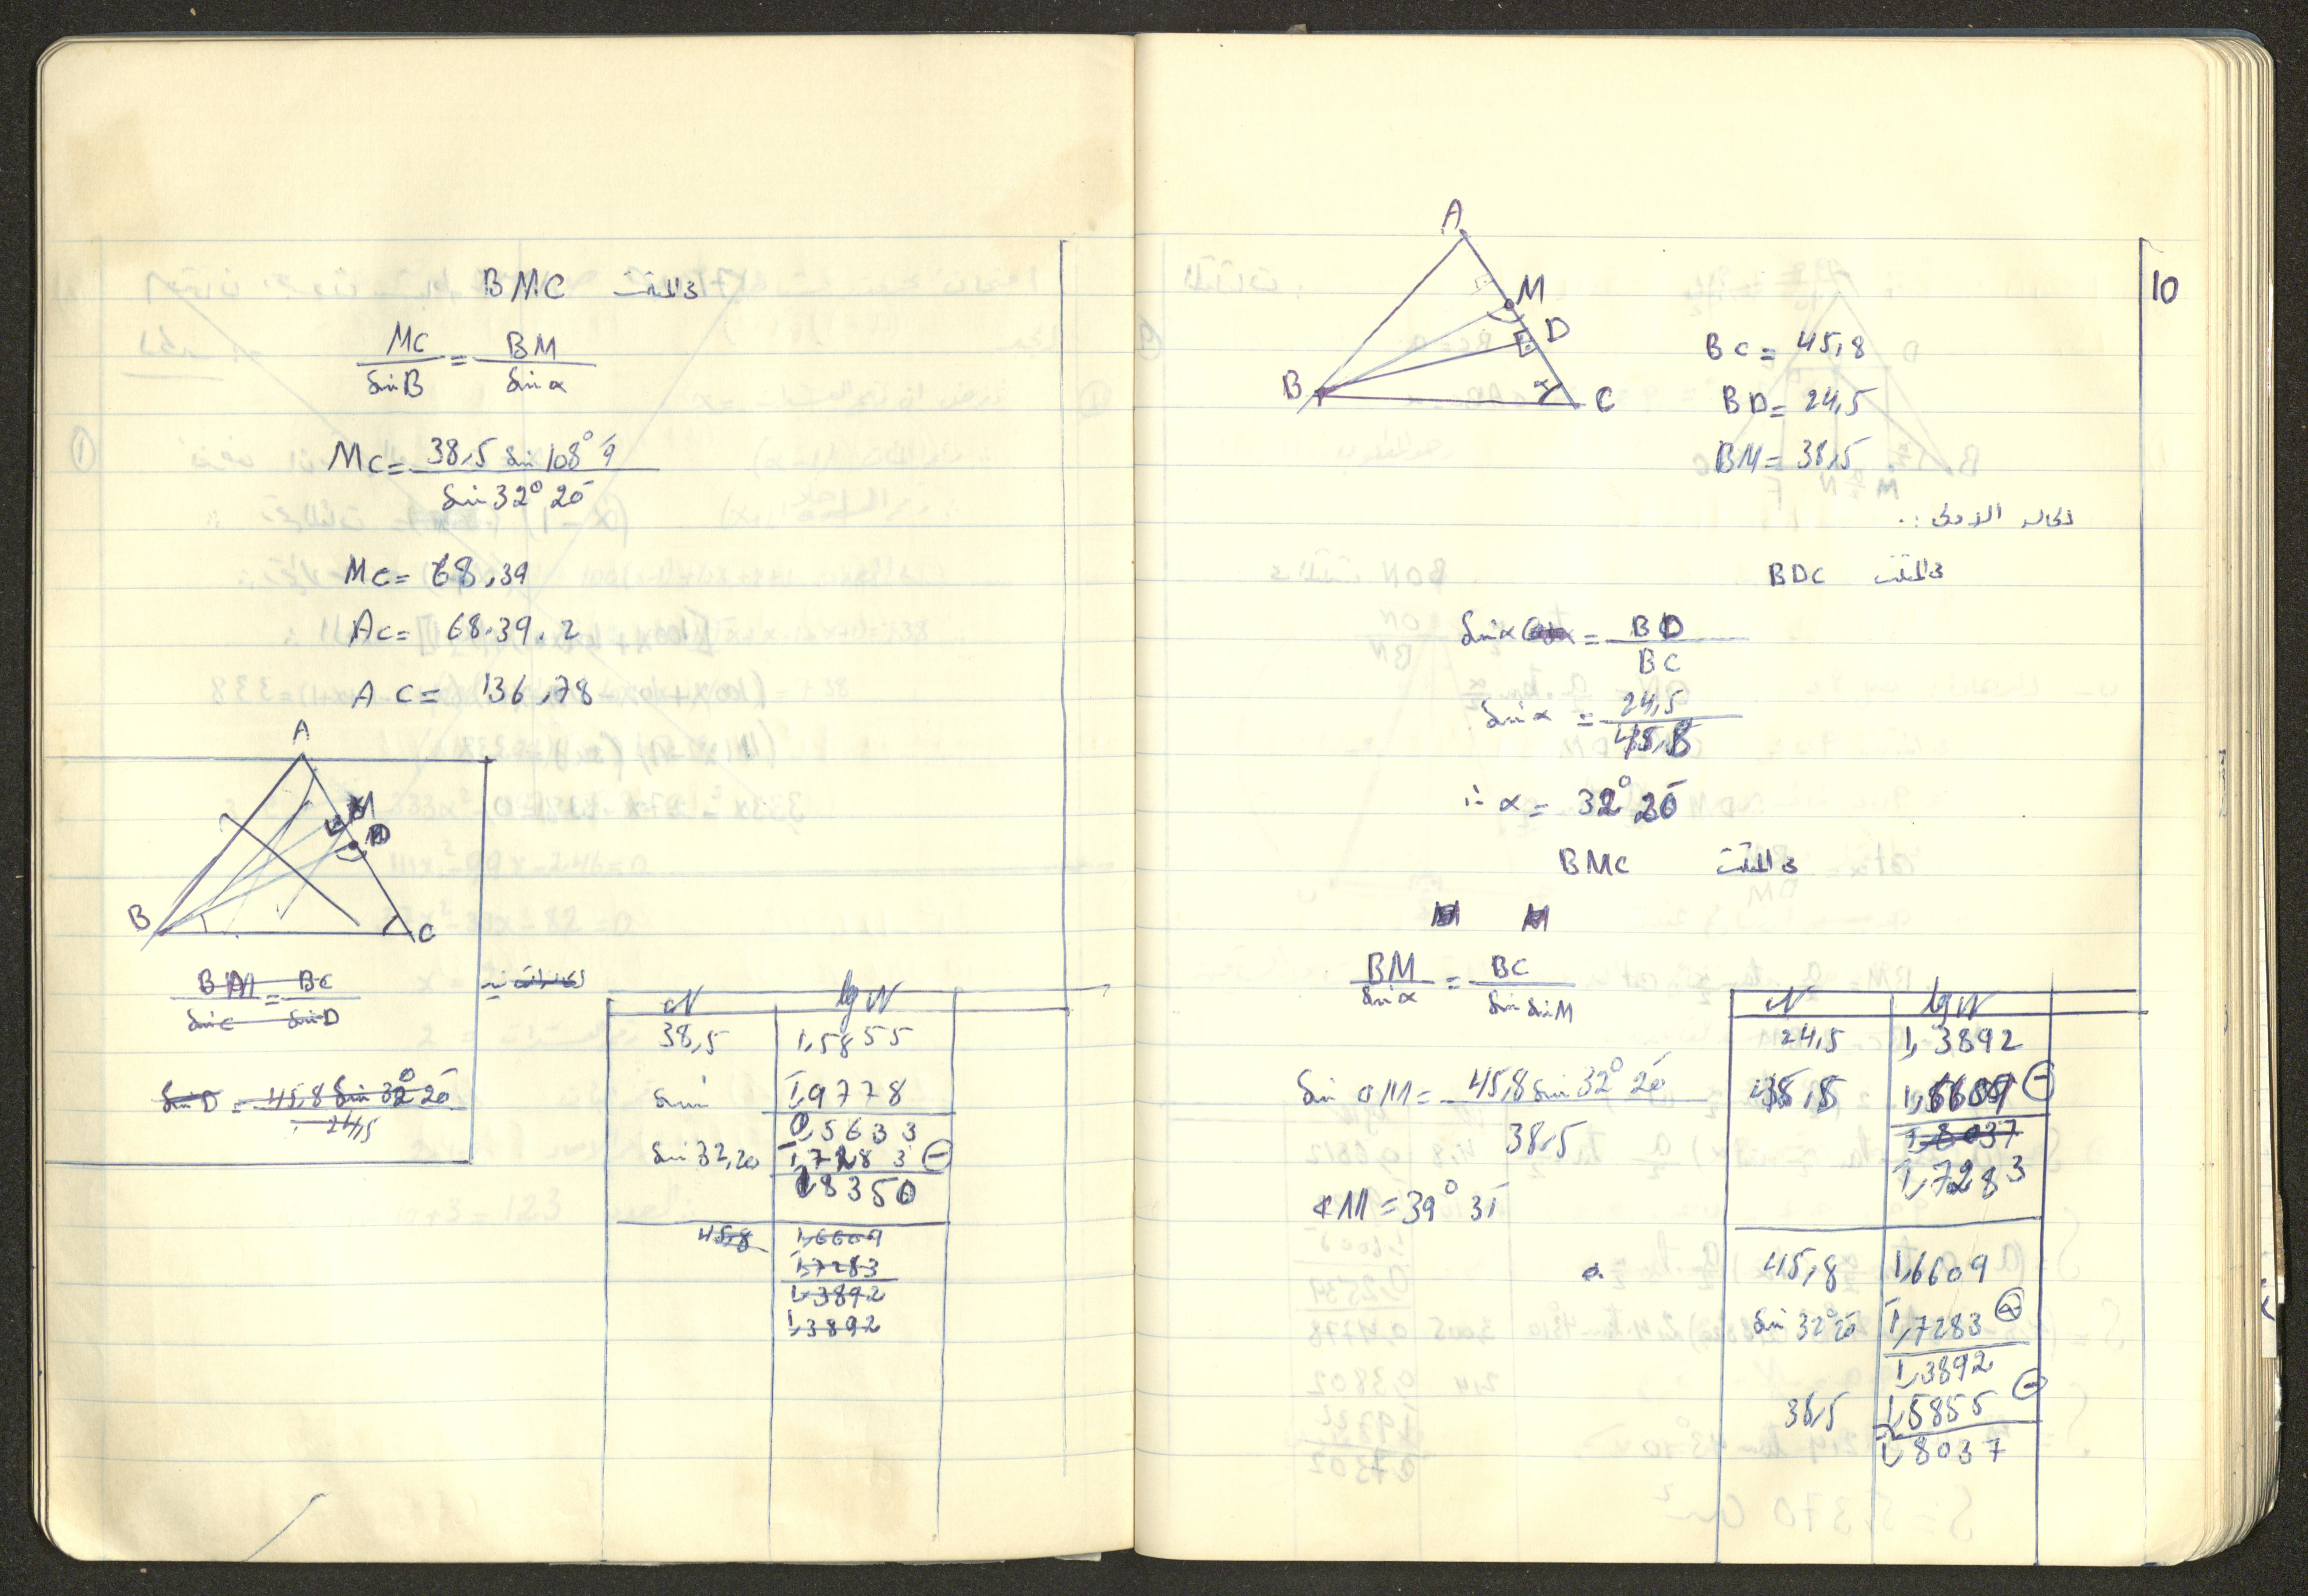 10
A
M
D
B
C
BC = 45,8
BD = 24,5
BM = 38,5
BDC في المثلث
Sin α = BD / BC
Sin α = 24,5 / 45,8
∴ α = 32° 20'
BMC في المثلث
BM / Sin α = BC / Sin SinM
Sin M = 45,8 Sin 32° 20' / 38,5
∢M = 39° 31'
N lg N
24,5 1,3892
45,8 1,6609 ⊖
1,8037
1̄,7283
45,8 1,6609
Sin 32° 20' 1̄,7283 ⊕
1,3892
38,5 1,5855 ⊖
1̄,8037
BMC في المثلث
MC / Sin B = BM / Sin α
MC = 38,5 Sin 108° 9' / Sin 32° 20'
MC = 68,39
AC = 68.39.2
AC = 136,78
A
M
D
B
C
BM / Sin C = BC / Sin D
Sin D = 45,8 Sin 32° 20' / 24,5
N lg N
38,5 1,5855
Sin 1̄,9778
1,5633
Sin 32,20 1̄,7283 ⊖
1,8350
45,8 1,6609
1̄,7283
1,3892
1,3892